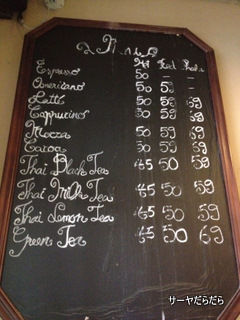 Menu
Hot Iced Frabe
Espresso 50 — —
Americano 50 50 —
Latté 50 59 69
Cappucino 50 59 69
Mocca 50 59 69
Cocoa 50 59 69
Thai Black Tea 45 50 59
Thai Milk Tea 45 50 59
Thai Lemon Tea 45 50 59
Green Tea 45 50 69
サーヤだらだら